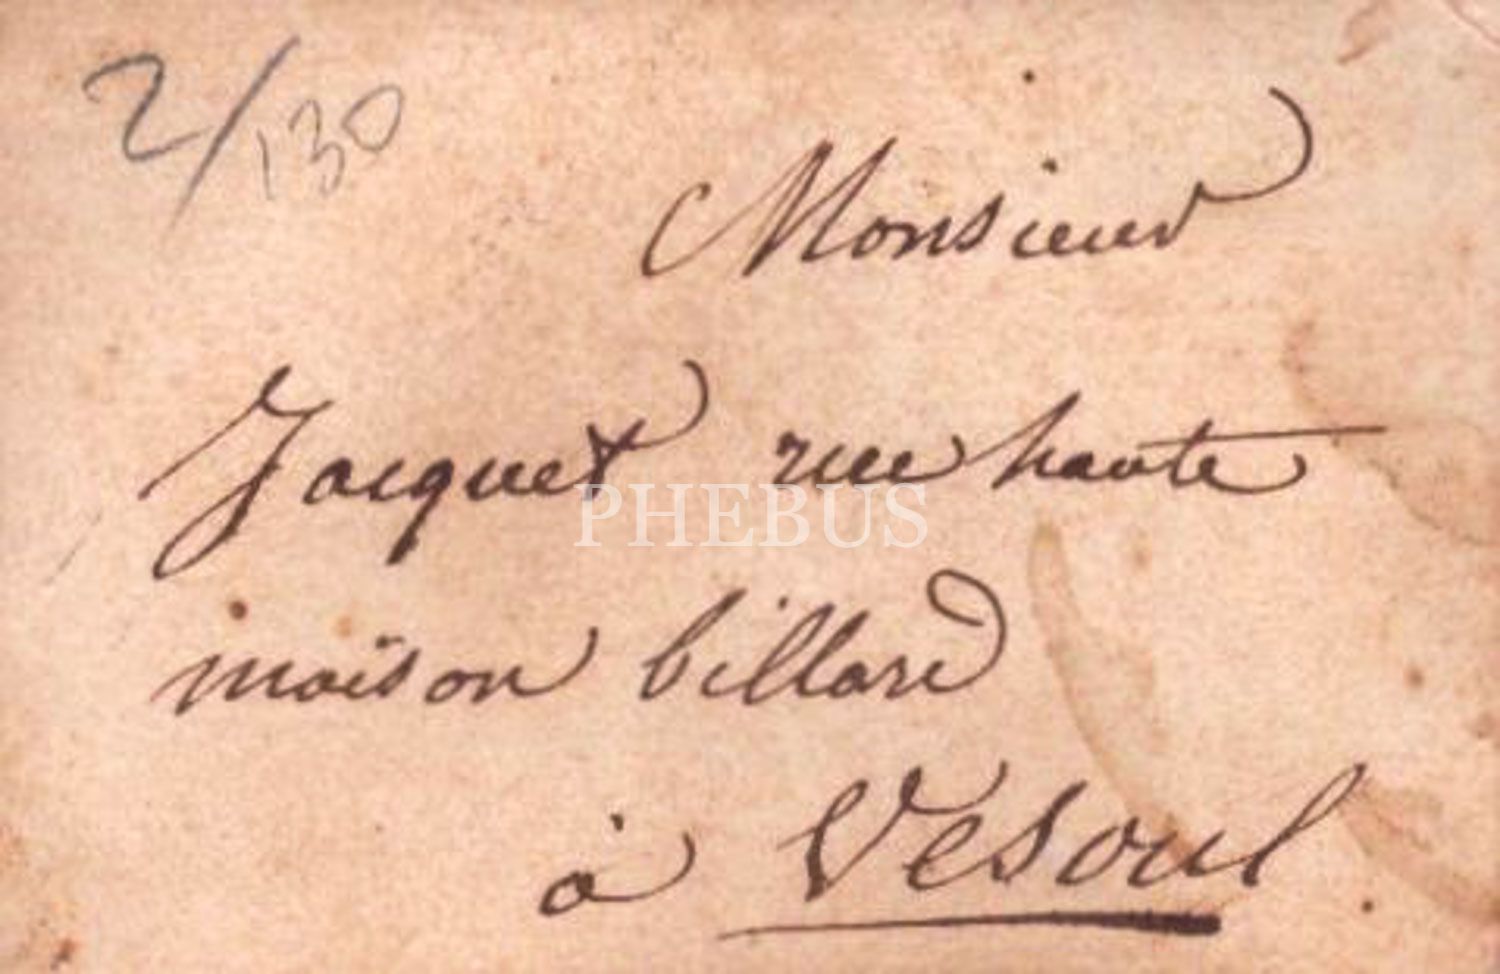 2/130
Monsieur
Jacquet rue haute
PHEBUS
maison billard
à Vesoul